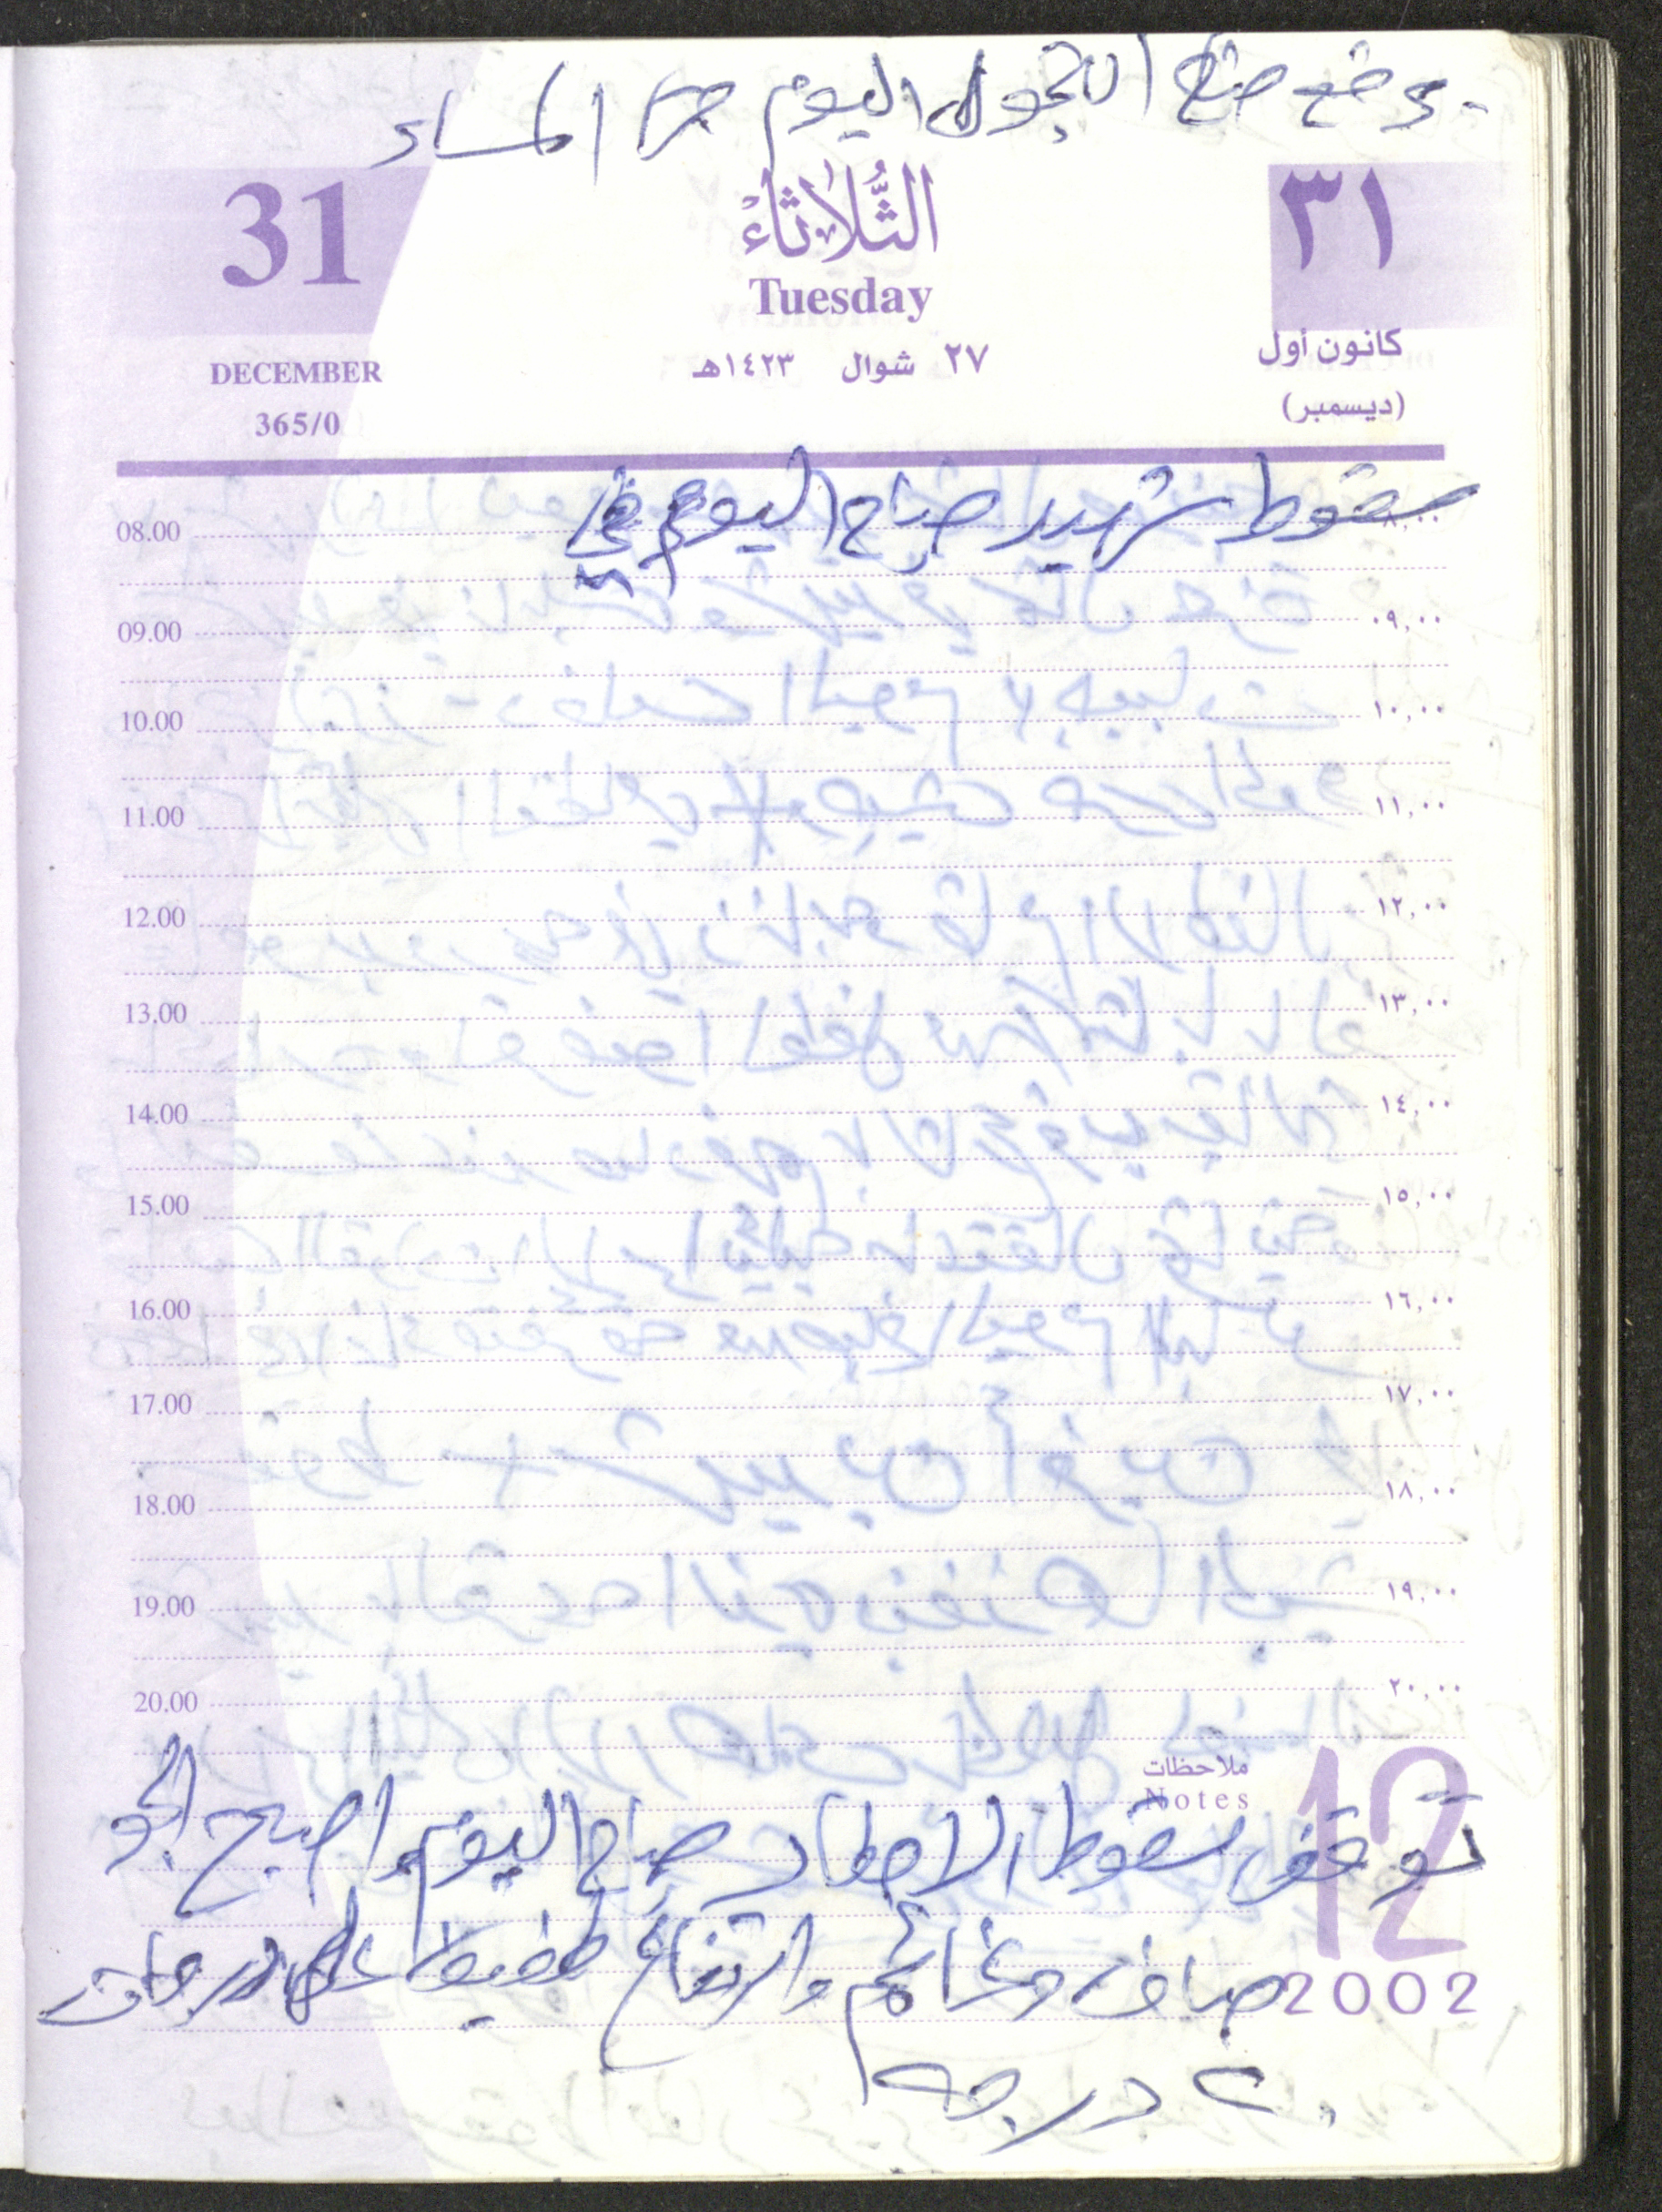 - رفع منع التجول اليوم حتى المساء
31
الثُّلاثاءْ
٣١
Tuesday
DECEMBER
٢٧ شوال ١٤٢٣هـ
كانون أول
365/0
(ديسمبر)
سقوط شهيد صباح اليوم في
08.00 ٨,٠٠
09.00 ٠٩,٠٠
10.00 ١٠,٠٠
11.00 ١١,٠٠
12.00 ١٢,٠٠
13.00 ١٣,٠٠
14.00 ١٤,٠٠
15.00 ١٥,٠٠
16.00 ١٦,٠٠
17.00 ١٧,٠٠
18.00 ١٨,٠٠
19.00 ١٩,٠٠
20.00 ٢٠,٠٠
ملاحظات
Notes
12
توقف سقوط الامطار صباح اليوم واصبح الجو
صافي وغائم وارتفاع طفيف على درجات
2002
درجة